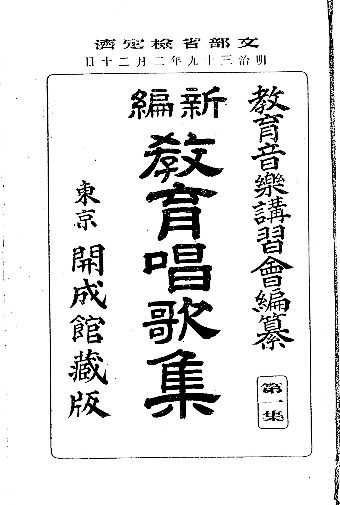 文部省檢定濟
明治三十九年二月二十日
教育音樂講習會編纂
第一集
新編
教育唱歌集
東京 開成館藏版